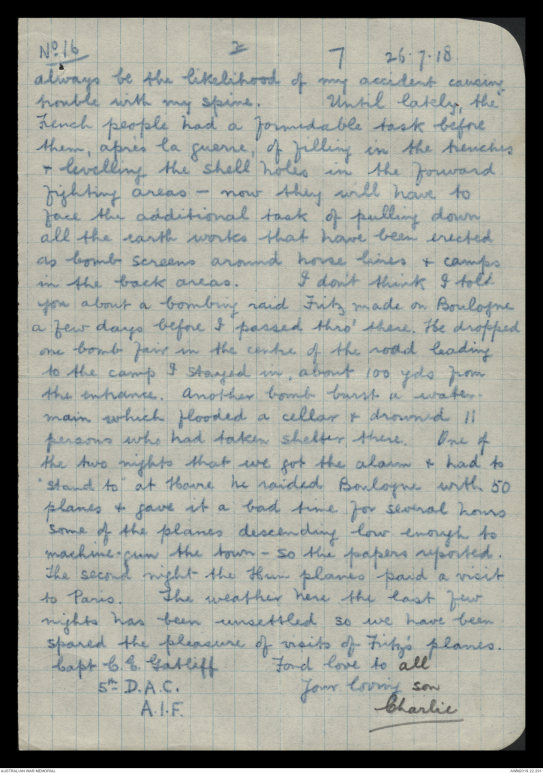 No 16 2 7 26.7.18
always be the likelihood of my accident causing
trouble with my spine. Until lately, the
French people had a formidable task before
them, apres la guerre, of filling in the trenches
& levelling the shell holes in the forward
fighting areas – now they will have to
face the additional task of pulling down
all the earth works that have been erected
as bomb screens around horse lines & camps
in the back areas. I don't think I told
you about a bombing raid Fritz made on Boulogne
a few days before I passed thro' there. He dropped
one bomb fair in the centre of the road leading
to the camp I stayed in, about 100 yds from
the entrance. Another bomb burst a water-
main which flooded a cellar & drowned 11
persons who had taken shelter there. One of
the two nights that we got the alarm & had to
"stand to" at Havre he raided Boulogne with 50
planes & gave it a bad time for several hours
some of the planes descending low enough to
machine-gun the town – so the papers reported.
The second night the Hun planes paid a visit
to Paris. The weather here the last few
nights has been unsettled so we have been
spared the pleasure of visits of Fritz's planes.
Capt C. E. Gatliff Fond love to all
5th D.A.C. Your loving son
A.I.F. Charlie
AUSTRALIAN WAR MEMORIAL